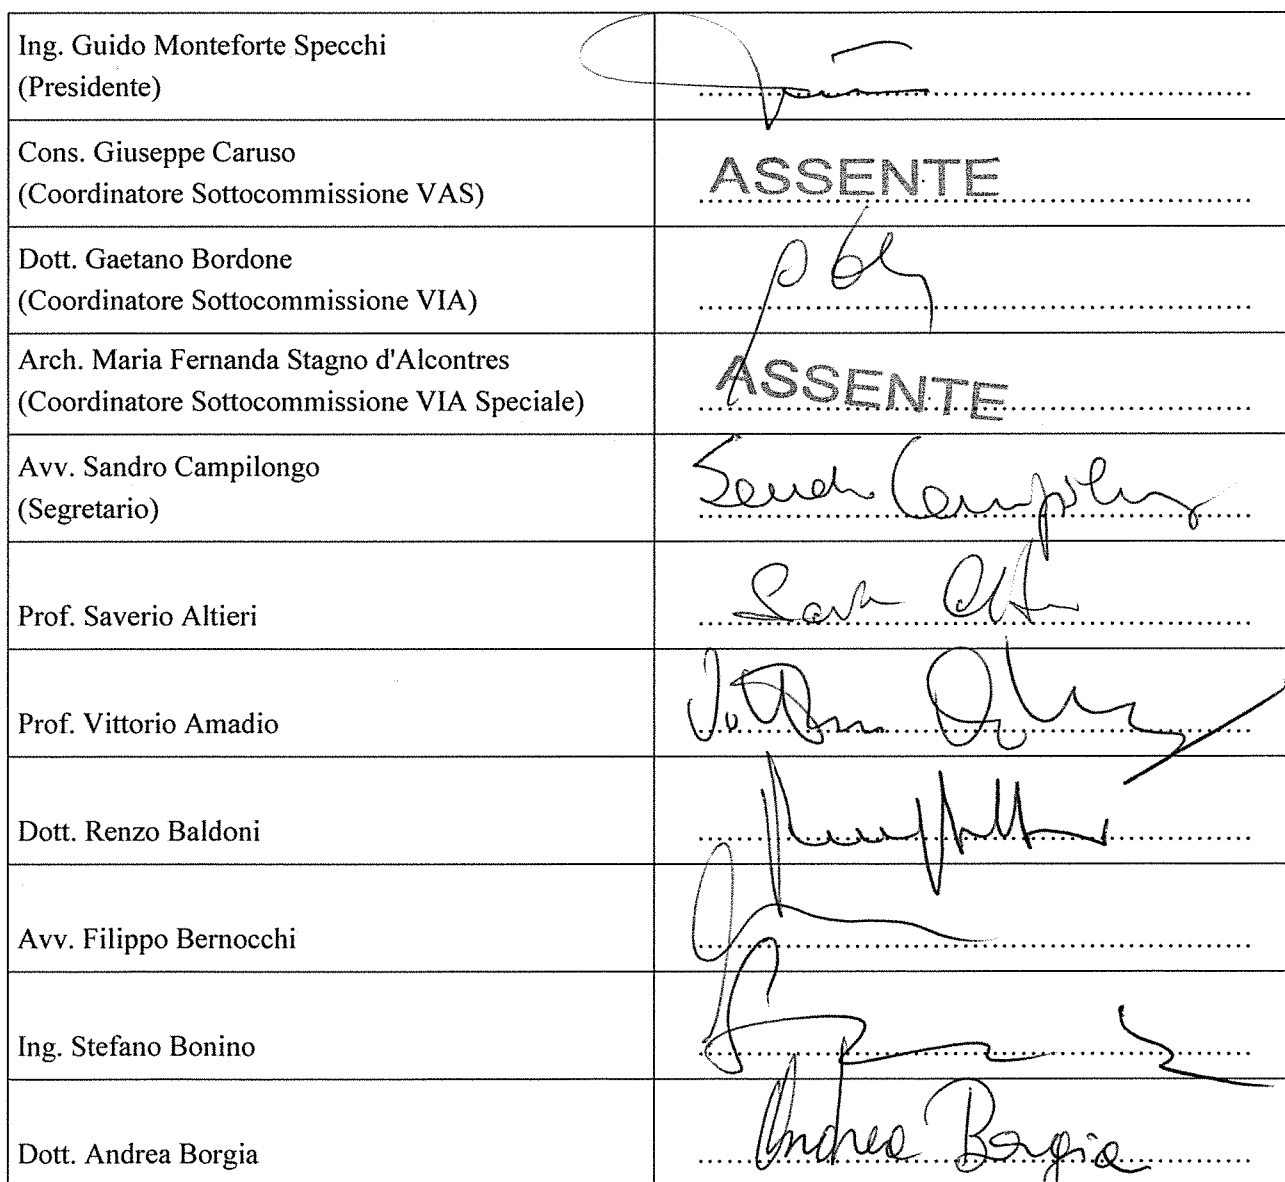 Ing. Guido Monteforte Specchi
(Presidente)
Cons. Giuseppe Caruso
(Coordinatore Sottocommissione VAS)
ASSENTE
Dott. Gaetano Bordone
(Coordinatore Sottocommissione VIA)
Arch. Maria Fernanda Stagno d'Alcontres
(Coordinatore Sottocommissione VIA Speciale)
ASSENTE
Avv. Sandro Campilongo
(Segretario)
Prof. Saverio Altieri
Prof. Vittorio Amadio
Dott. Renzo Baldoni
Avv. Filippo Bernocchi
Ing. Stefano Bonino
Dott. Andrea Borgia
Andrea Borgia